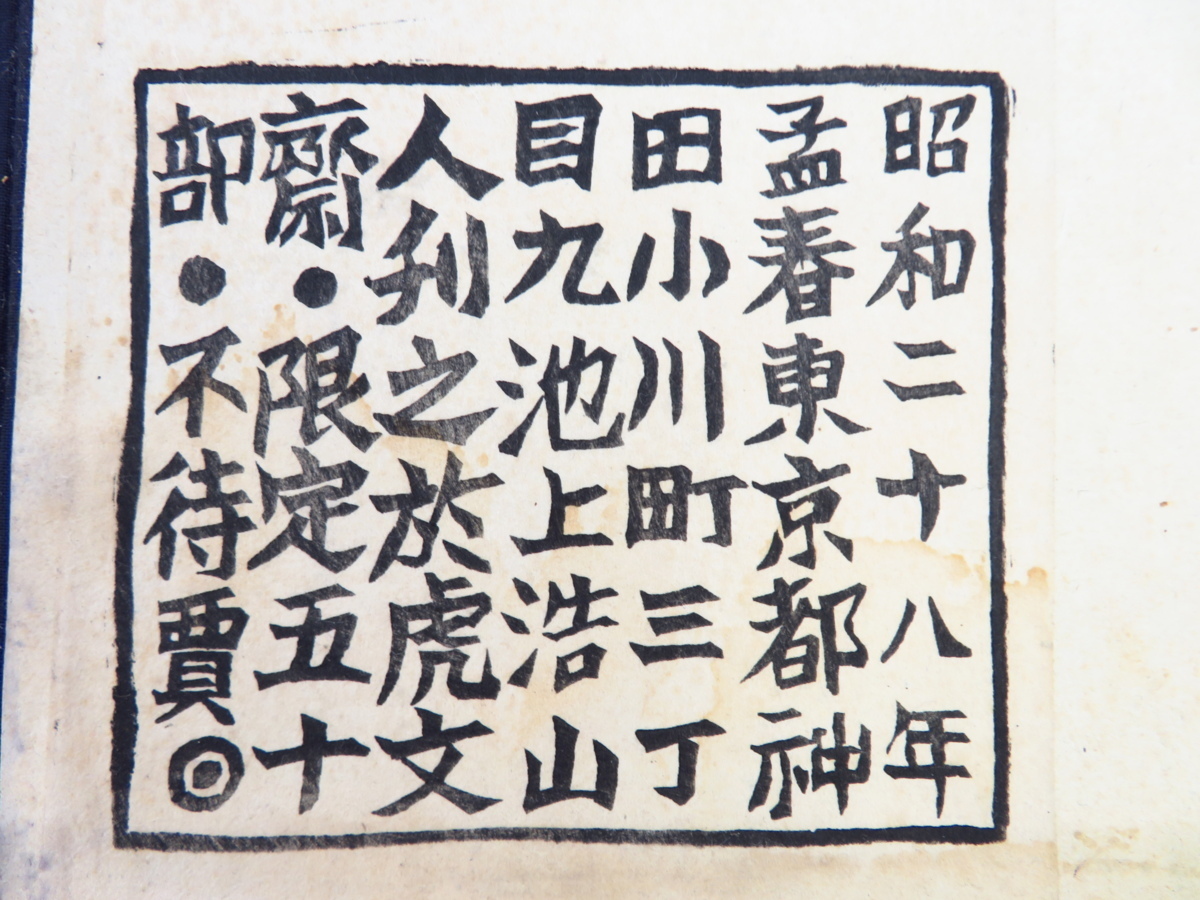 昭和二十八年
孟春東京都神
田小川町三丁
目九池上浩山
人刋之於虎文
齋●限定五十
部●不待賈◎